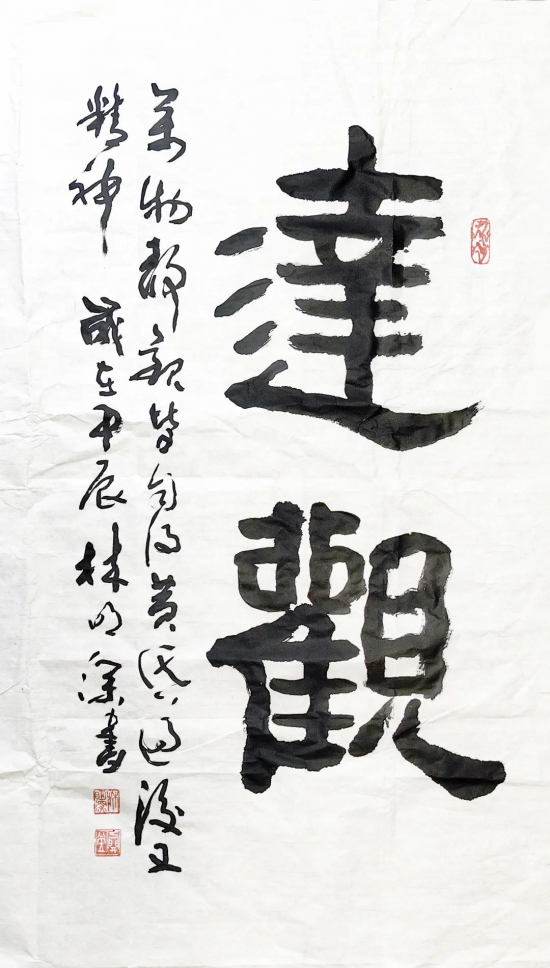 達觀
萬物靜觀皆自得黃昏過後又
精神 歲在甲辰林明深書